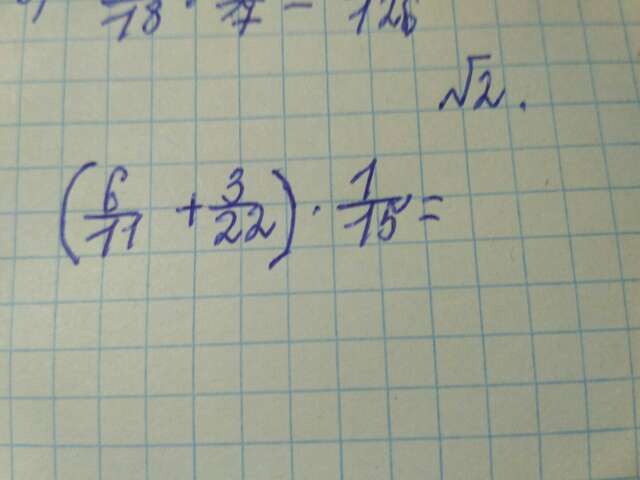 /18 · /17 = 126
√2.
(6/11 + 3/22) · 1/15 =